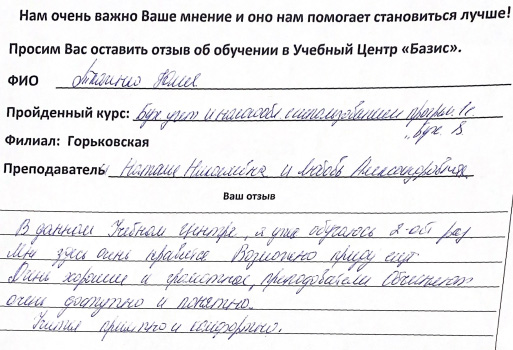 Нам очень важно Ваше мнение и оно нам помогает становиться лучше!
Просим Вас оставить отзыв об обучении в Учебный Центр «Базис».
ФИО Юлия
Пройденный курс: Бух учет и налогообл с использованием програм. 1С
"Бух. 8
Филиал: Горьковская
Преподаватель Наталия Николаевна и Любовь Александровна
Ваш отзыв
В данном Учебном центре, я уже обучаюсь 2-ой раз
Мне здесь очень нравится Возможно приду еще
Очень хорошие и грамотные, преподователи Объясняют
очень доступно и понятно.
приятно и комфортно.